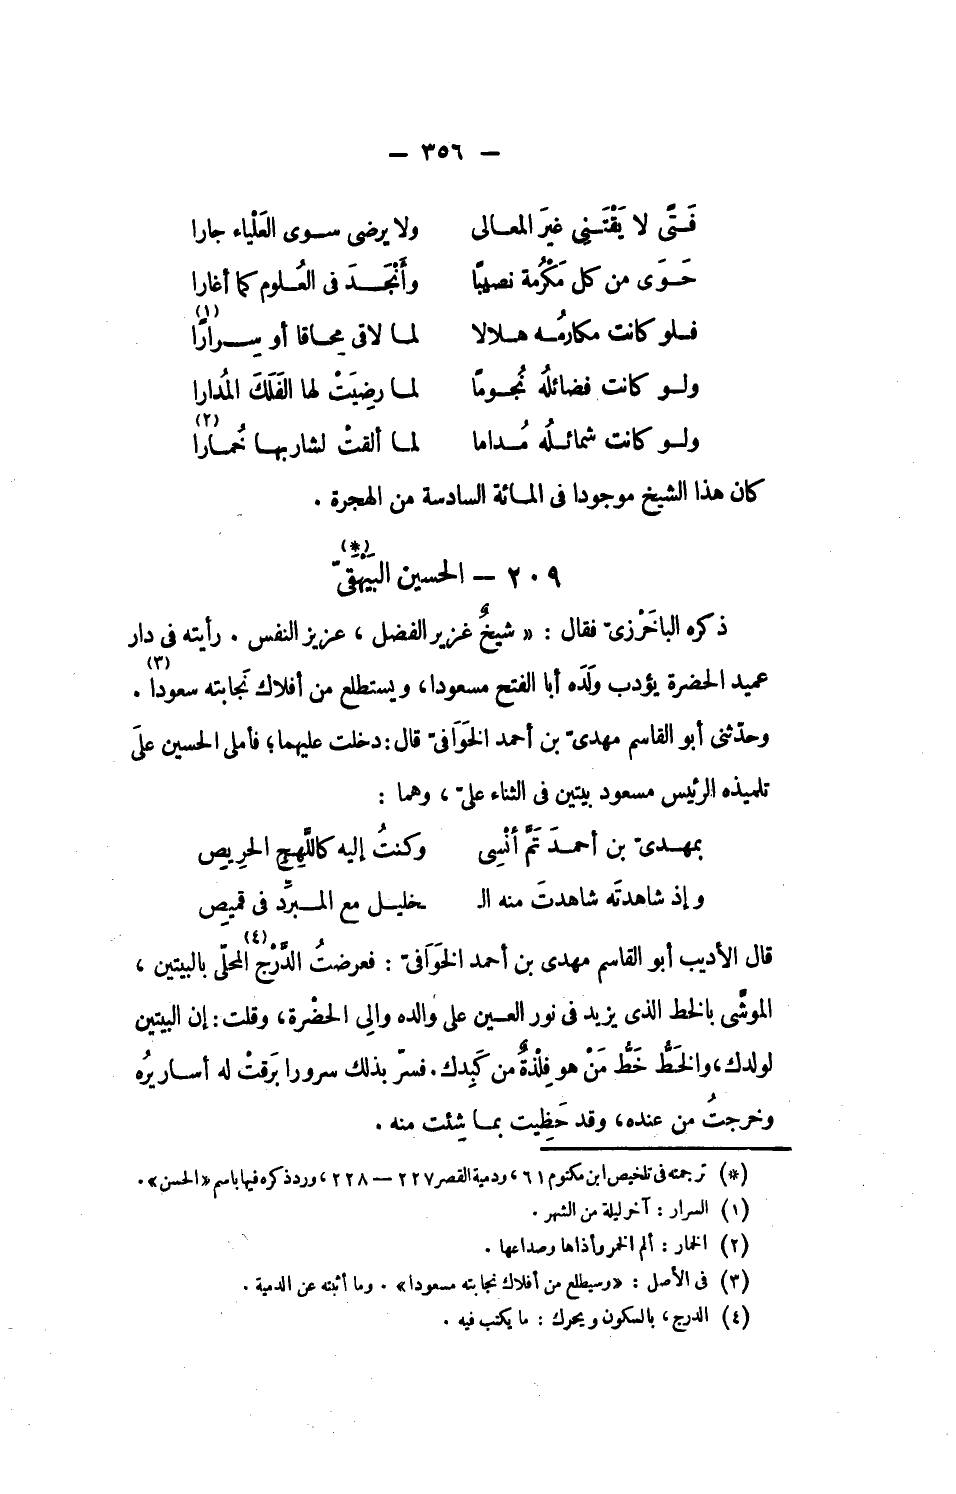 — ٣٥٦ —
فَــتًى لا يَقْتَــنِي غيَر المعــالى ولا يرضى ســوى العَلْياء جارا
حَــوَى من كل مَكْرُمة نصيبًا وأَنْجَــدَ فى العُــلوم كما أغارا
فــلو كانت مكارمُــه هــلالا لمــا لاقى محِــاقا أو سِــرارًا (١)
ولــو كانت فضائلُه نُجــومًا لمــا رضِيَتْ لها الفَلَكَ المُدارا
ولــو كانت شمائــلُه مُــداما لمــا ألفتْ لشاربهــا خُمــارا (٢)
كان هذا الشيخ موجودا فى المــائة السادسة من الهجرة .
٢٠٩ — الحسين البَيْهَقىّ (*)
ذكره الباخَرْزىّ فقال : « شيخٌ غزير الفضل ، عزيز النفس . رأيته فى دار
عميد الحضرة يؤدب ولَدَه أبا الفتح مسعودا، ويستطلع من أفلاك نَجابته سعودا (٣) .
وحدّثنى أبو القاسم مهدىّ بن أحمد الخَوَافىّ قال : دخلت عليهما؛ فأملى الحسين علىَ
تلميذه الرئيس مسعود بيتين فى الثناء علىّ ، وهما :
بمهــدىّ بن أحمــدَ تَمَّ أُنْسِى وكنتُ إليه كاللَّهِجِ الحرِيصِ
وإذ شاهدتَه شاهدتَ منه الـ ـخليــل مع المــبرِّد فى قميصِ
قال الأديب أبو القاسم مهدى بن أحمد الخَوَافىّ : فعرضتُ الدَّرْج (٤) المحلّى بالبيتين ،
الموشَّى بالخط الذى يزيد فى نور العــين على والده والِى الحضْرة، وقلت : إن البيتين
لولدك، والخَطُّ خَطُّ مَنْ هو فِلْذةٌ من كَبِدك . فسرّ بذلك سرورا بَرَقتْ له أســاريرُه
وخرجتُ من عنده، وقد حَظِيت بمــا شِئت منه .
(*) ترجمته فى تلخيص ابن مكتوم ٦١ ، ودمية القصر ٢٢٧ — ٢٢٨ ، وورد ذكره فيها باسم « الحسن » .
(١) السرار : آخر ليلة من الشهر .
(٢) الخمار : ألم الخمر وأذاها وصداعها .
(٣) فى الأصل : « وسيطلع من أفلاك نجابته مسعودا » . وما أثبته عن الدمية .
(٤) الدرج ، بالسكون ويحرك : ما يكتب فيه .